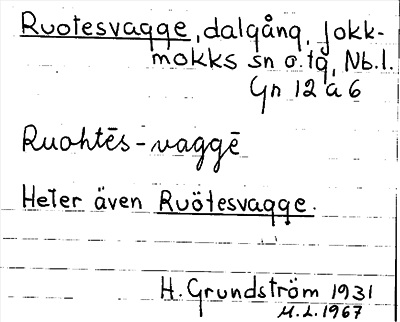 Ruotesvagge, dalgång, Jokk-
mokks sn o. tg, Nb.l.
Gn 12 a 6
Ruohtēs-vaggē
Heter även Ruötesvagge.
H. Grundström 1931
M.L. 1967